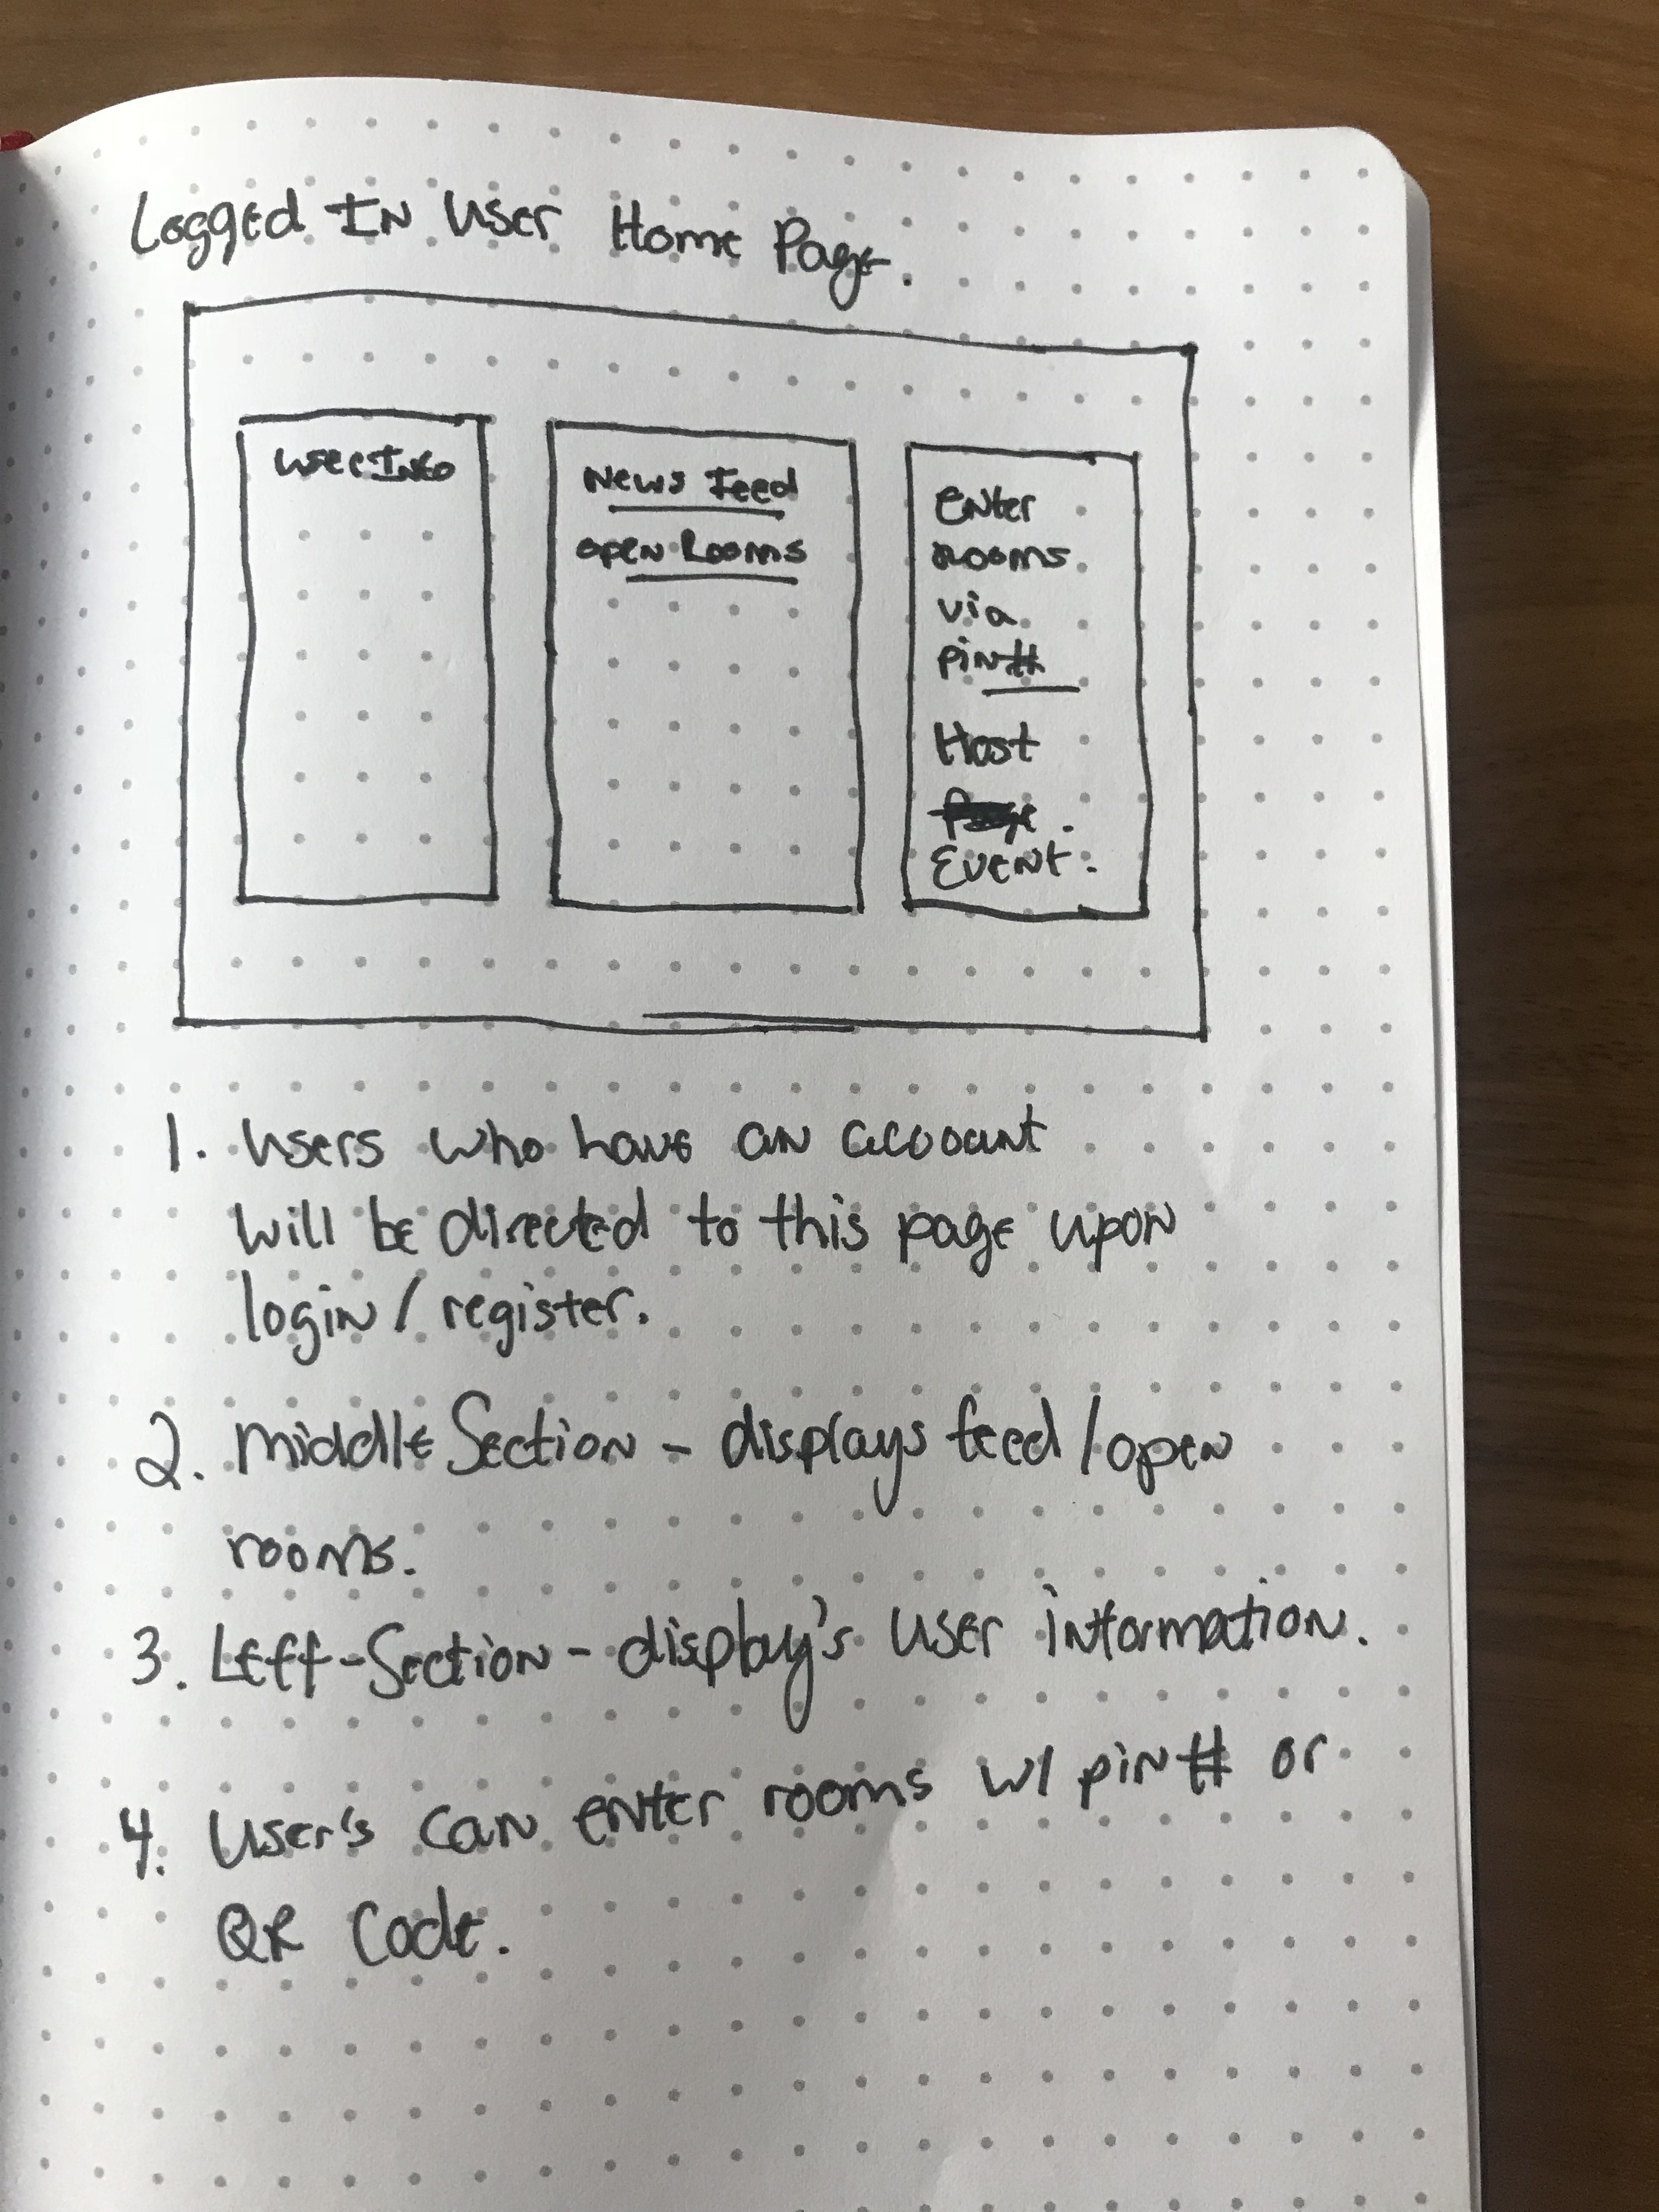 Logged In User Home Page.
User Info
News Feed
open Rooms
Enter
rooms.
via
pin#
Host
Event.
1. Users who have an account
will be directed to this page upon
login / register.
2. Middle Section - displays feed / open
rooms.
3. Left-Section - display's user information.
4. User's can enter rooms w/ pin # or
QR Code.